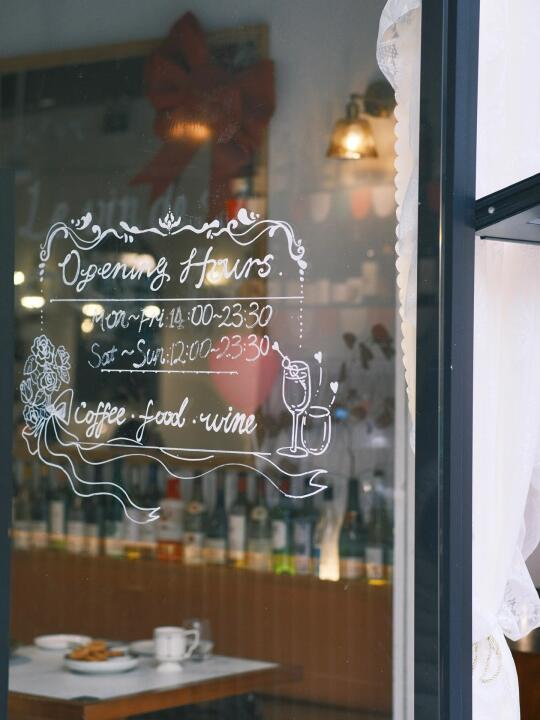 Le vin de
Opening Hours.
Mon~Fri:14:00~23:30
Sat~Sun:12:00~23:30
Coffee·food·wine